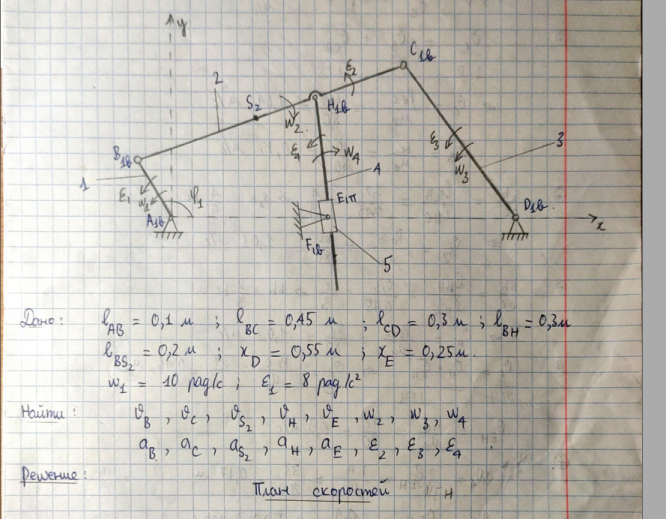 y
C₁в
2
ε₂
S₂
H₁в
ω₂
ε₄
ω₄
ε₃
3
B₁в
ω₃
1
4
ε₁
ω₁
φ₁
E₁п
A₁в
D₁в
x
F₁в
5
Дано: l_AB = 0,1 м ; l_BC = 0,45 м ; l_CD = 0,3 м ; l_BH = 0,3м
l_BS₂ = 0,2 м ; x_D = 0,55 м ; x_E = 0,25м.
ω₁ = 10 рад/с ; ε₁ = 8 рад/с²
Найти: ϑ_B , ϑ_C , ϑ_S₂ , ϑ_H , ϑ_E , ω₂ , ω₃ , ω₄
a_B , a_C , a_S₂ , a_H , a_E , ε₂ , ε₃ , ε₄ .
Решение:
План скоростей